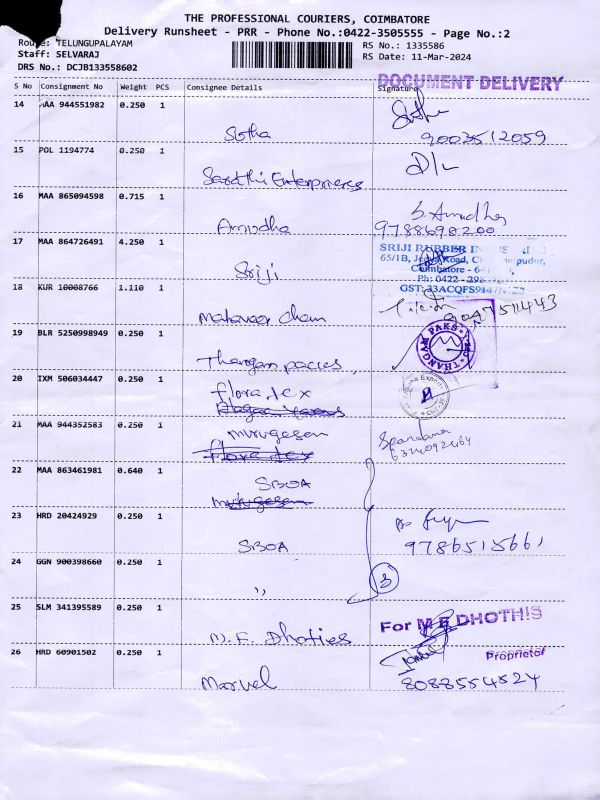 THE PROFESSIONAL COURIERS, COIMBATORE
Delivery Runsheet - PRR - Phone No.:0422-3505555 - Page No.:2
Route: TELUNGUPALAYAM
RS No.: 1335586
Staff: SELVARAJ
RS Date: 11-Mar-2024
DRS No.: DCJB133558602
DOCUMENT DELIVERY
S No Consignment No Weight PCS Consignee Details Signature
14 MAA 944551982 0.250 1
9003512059
15 POL 1194774 0.250 1
Sarathi Enterprises
16 MAA 865094598 0.715 1
Anudha
9788698200
17 MAA 864726491 4.250 1
SRIJI RUBBER
65/1B, Road,
Coimbatore - 64
Ph: 0422 -
GST: 33ACQFS9
Sriji
18 KUR 10008766 1.110 1
Mahaveer Cham
19 BLR 5250998949 0.250 1
THANGAM PAKS
Thangam pacies
20 IXM 506034447 0.250 1
Flora tex
21 MAA 944352583 0.250 1
murugesan
Spandana
6374092464
Flora tex
22 MAA 863461981 0.640 1
SBOA
murugesan
23 HRD 20424929 0.250 1
SBOA
9786515661
24 GGN 900398660 0.250 1
"
3
25 SLM 341395589 0.250 1
For M F DHOTHIS
M.F. Dhoties
26 HRD 60901502 0.250 1
Proprietor
Marvel
8088554524